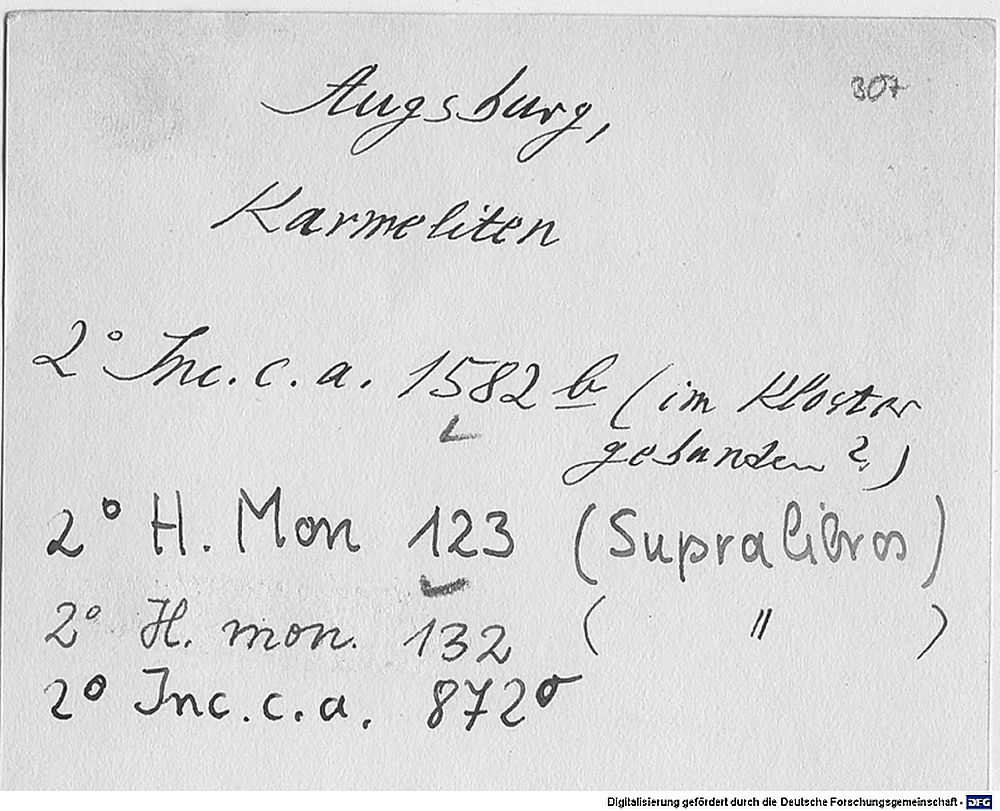 307
Augsburg,
Karmeliten
2° Inc. c. a. 1582 b (im Kloster
gebunden?)
2° H. Mon 123 (Supralibros)
2° H. mon. 132 ( " )
2° Inc. c. a. 872σ
Digitalisierung gefördert durch die Deutsche Forschungsgemeinschaft - DFG